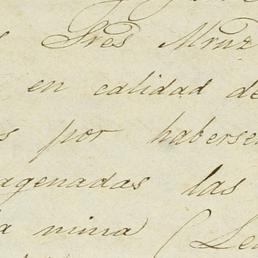 Tres Mruz
en calidad de
s por haberse
agenadas las
a mina (Le